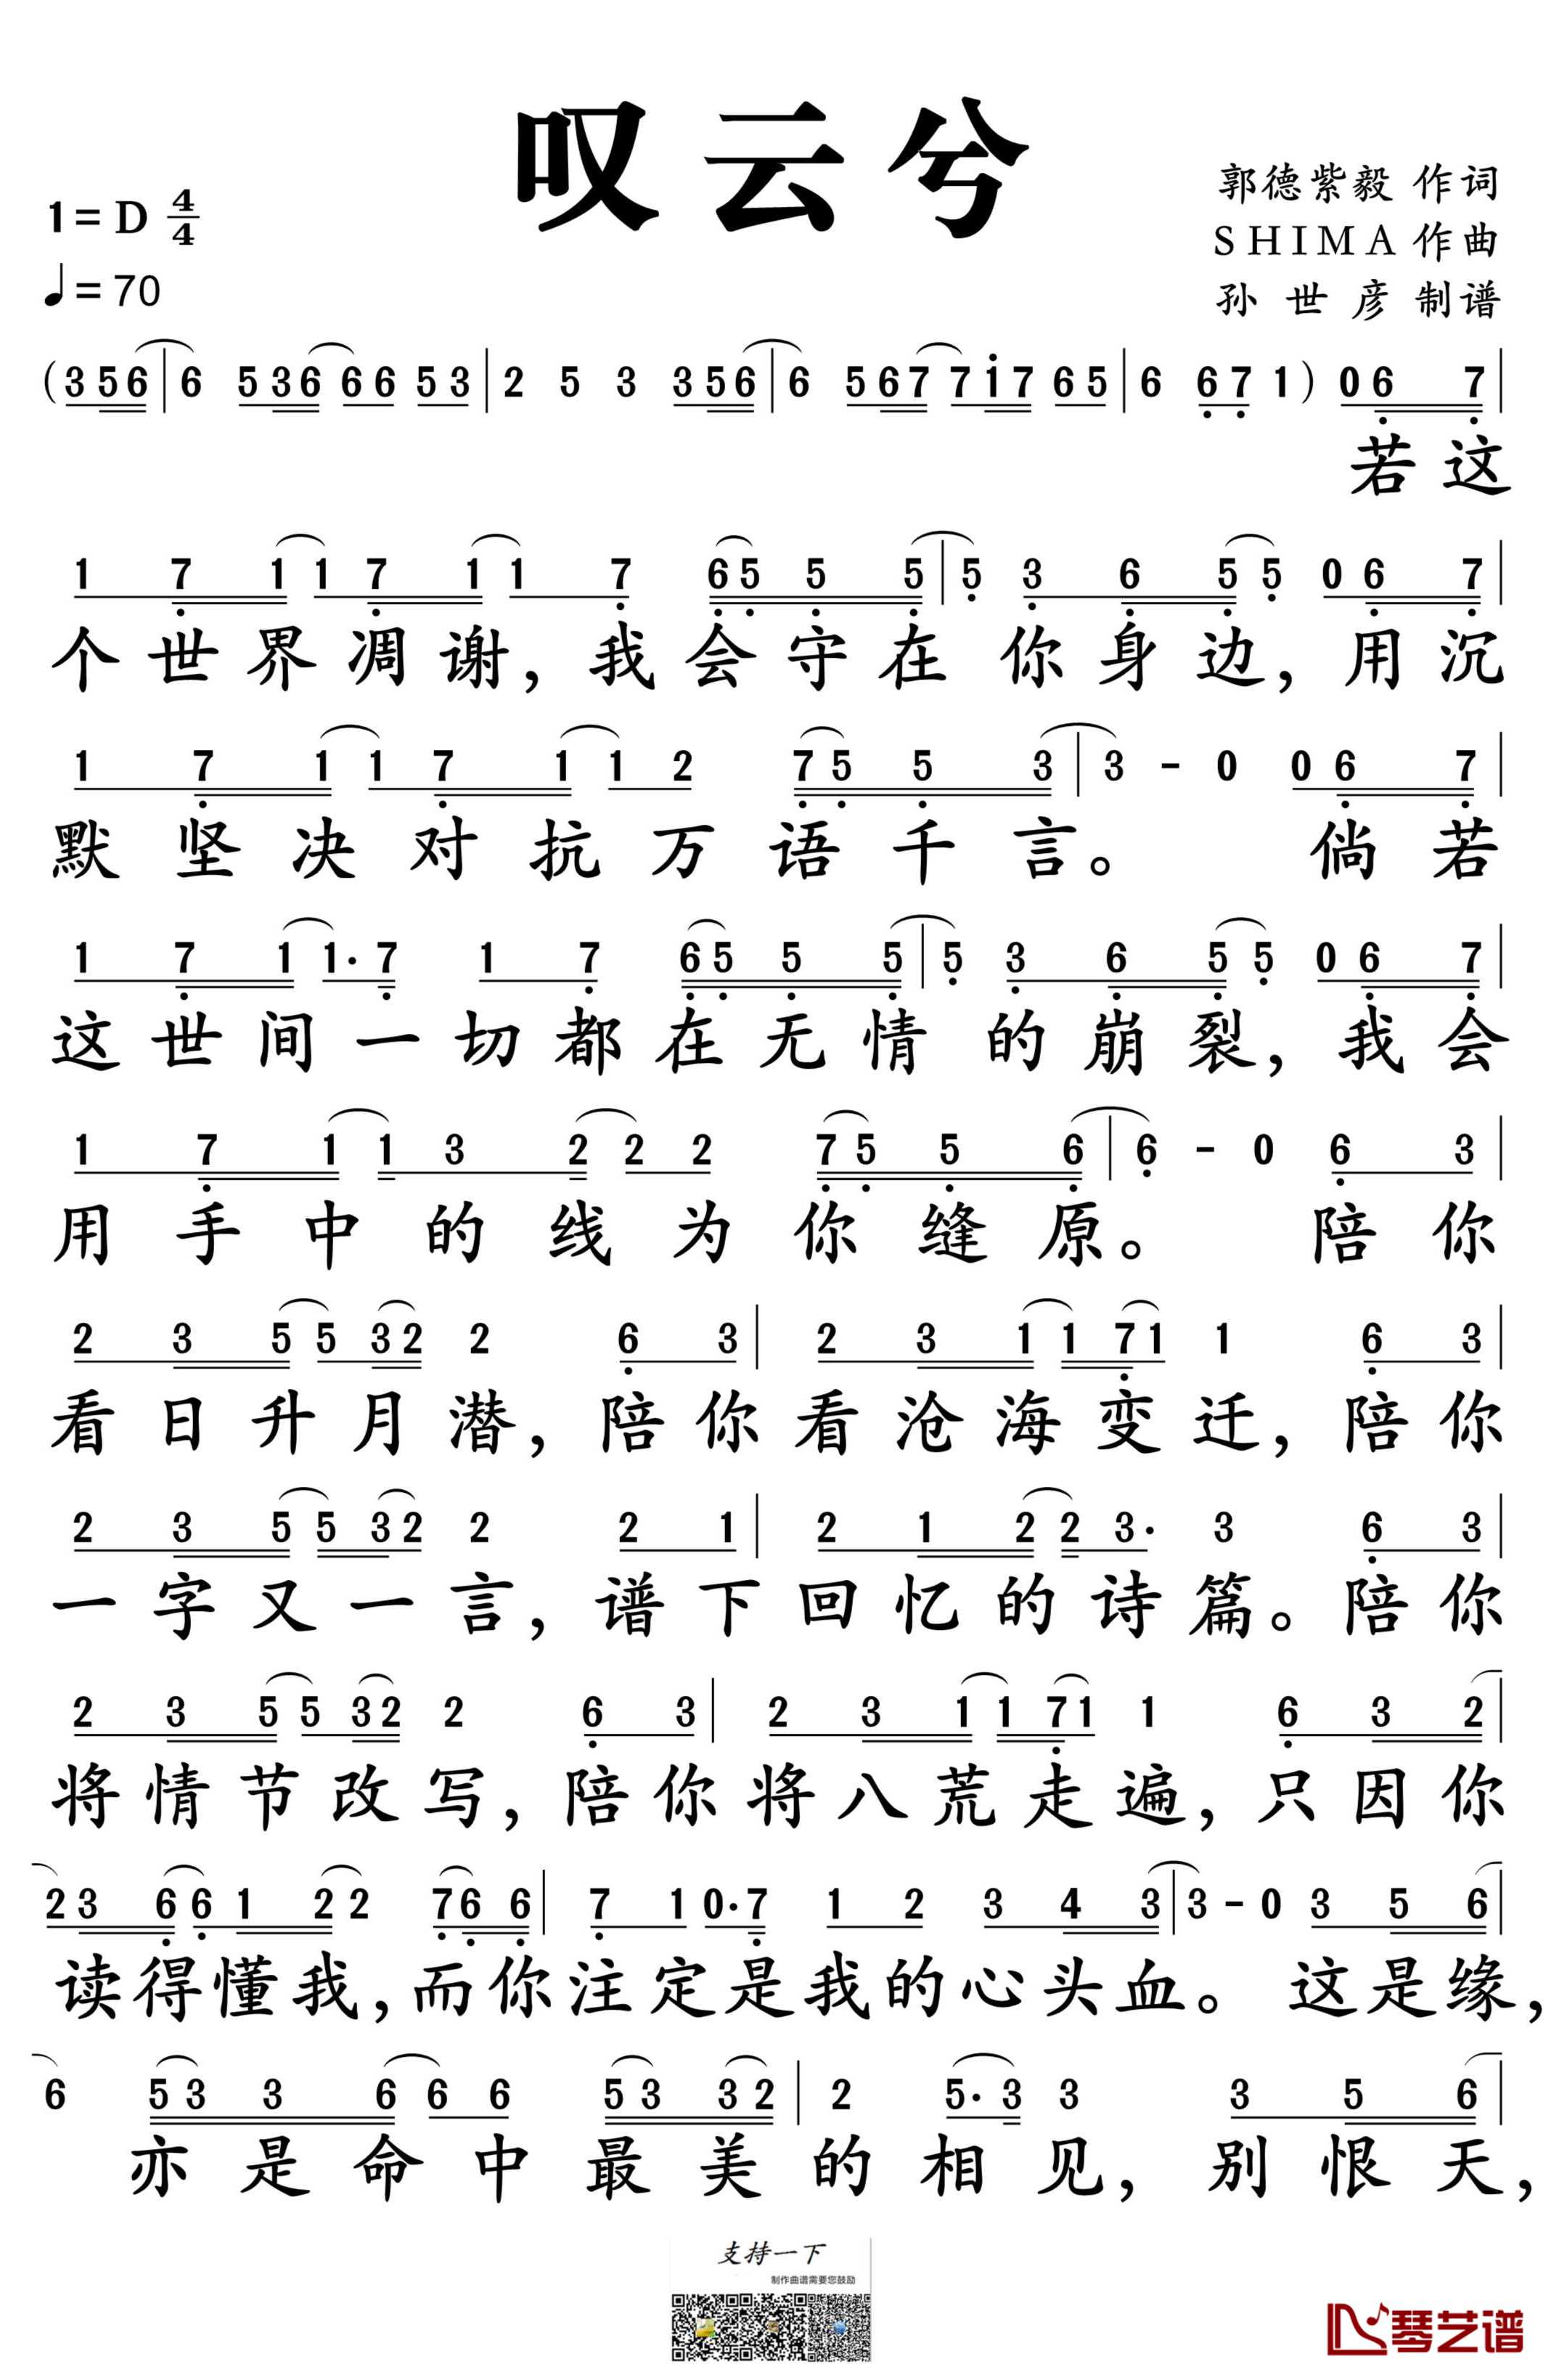 叹云兮
郭德紫毅 作词
1= D 4/4
SHIMA 作曲
♩= 70
孙世彦 制谱
(3 5 6 | 6 5 3 6 6 6 5 3 | 2 5 3 3 5 6 | 6 5 6 7 7 1 7 6 5 | 6 6 7 1 ) 0 6 7 |
若这
1 7 1 1 7 1 1 7 6 5 5 5 | 5 3 6 5 5 0 6 7 |
个世界凋谢，我会守在你身边，用沉
1 7 1 1 7 1 1 2 7 5 5 3 | 3 - 0 0 6 7 |
默坚决对抗万语千言。 倘若
1 7 1 1· 7 1 7 6 5 5 5 | 5 3 6 5 5 0 6 7 |
这世间一切都在无情的崩裂，我会
1 7 1 1 3 2 2 2 7 5 5 6 | 6 - 0 6 3 |
用手中的线为你缝原。 陪你
2 3 5 5 3 2 2 6 3 | 2 3 1 1 7 1 1 6 3 |
看日升月潜，陪你看沧海变迁，陪你
2 3 5 5 3 2 2 2 1 | 2 1 2 2 3· 3 6 3 |
一字又一言，谱下回忆的诗篇。陪你
2 3 5 5 3 2 2 6 3 | 2 3 1 1 7 1 1 6 3 2 |
将情节改写，陪你将八荒走遍，只因你
2 3 6 6 1 2 2 7 6 6 | 7 1 0· 7 1 2 3 4 3 | 3 - 0 3 5 6 |
读得懂我，而你注定是我的心头血。 这是缘，
6 5 3 3 6 6 6 5 3 3 2 | 2 5· 3 3 3 5 6 |
亦是命中最美的相见，别恨天，
支持一下
制作曲谱需要您鼓励
琴艺谱